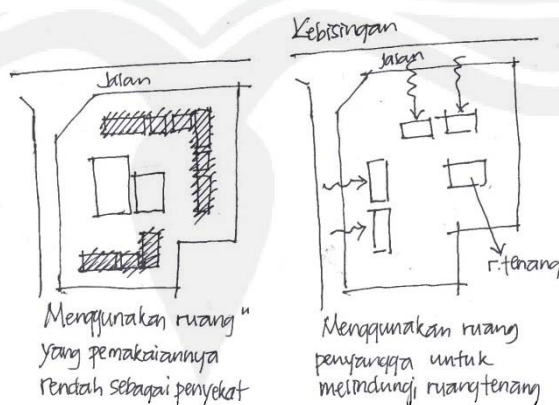 Kebisingan
Jalan
Jalan
r.tenang
Menggunakan ruang"
yang pemakaiannya
rendah sebagai penyekat
Menggunakan ruang
penyangga untuk
melindungi ruang tenang